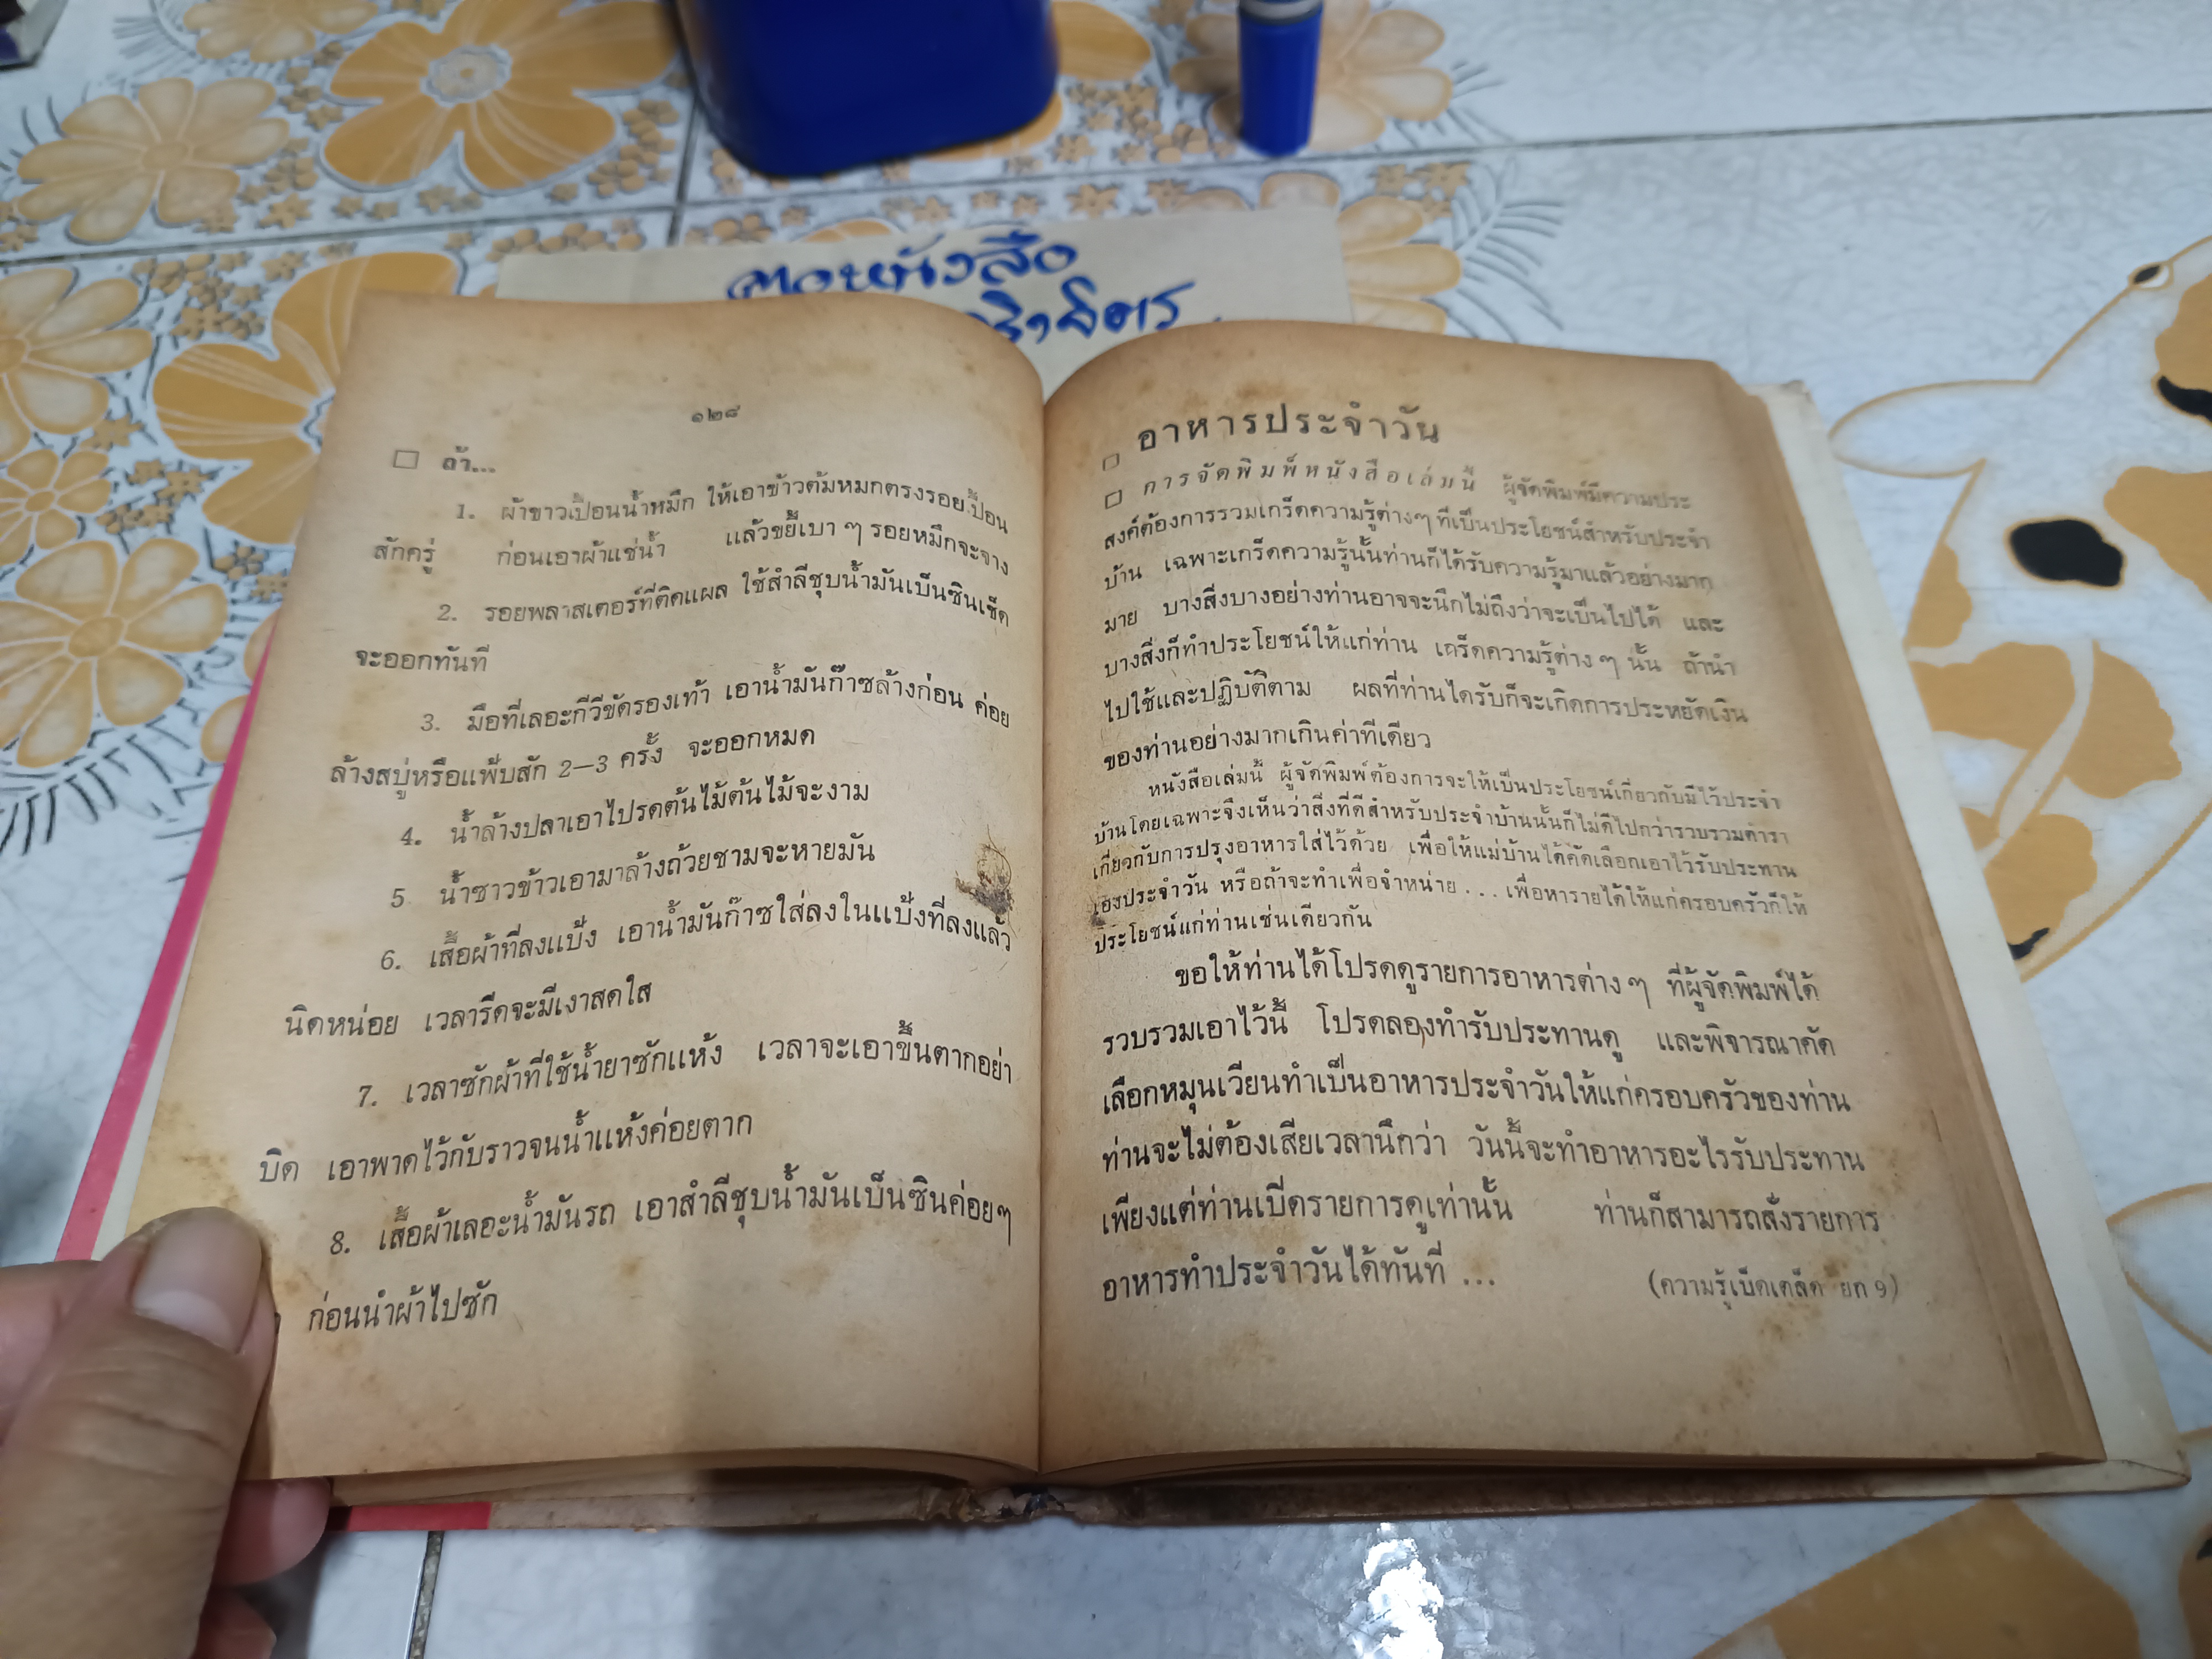 ๑๒๘
ถ้า...
1. ผ้าขาวเปื้อนน้ำหมึก ให้เอาข้าวต้มหมกตรงรอยเปื้อน
สักครู่ ก่อนเอาผ้าแช่น้ำ แล้วขยี้เบา ๆ รอยหมึกจะจาง
2. รอยพลาสเตอร์ที่ติดแผล ใช้สำลีชุบน้ำมันเบ็นซินเช็ด
จะออกทันที
3. มือที่เลอะกีวีขัดรองเท้า เอาน้ำมันก๊าซล้างก่อน ค่อย
ล้างสบู่หรือแฟ้บสัก 2–3 ครั้ง จะออกหมด
4. น้ำล้างปลาเอาไปรดต้นไม้ต้นไม้จะงาม
5 น้ำซาวข้าวเอามาล้างถ้วยชามจะหายมัน
6. เสื้อผ้าที่ลงแป้ง เอาน้ำมันก๊าซใส่ลงในแป้งที่ลงแล้ว
นิดหน่อย เวลารีดจะมีเงาสดใส
7. เวลาซักผ้าที่ใช้น้ำยาซักแห้ง เวลาจะเอาขึ้นตากอย่า
บิด เอาพาดไว้กับราวจนน้ำแห้งค่อยตาก
8. เสื้อผ้าเลอะน้ำมันรถ เอาสำลีชุบน้ำมันเบ็นซินค่อยๆ
ก่อนนำผ้าไปซัก
อาหารประจำวัน
การจัดพิมพ์หนังสือเล่มนี้ ผู้จัดพิมพ์มีความประ
สงค์ต้องการรวมเกร็ดความรู้ต่างๆ ที่เป็นประโยชน์สำหรับประจำ
บ้าน เฉพาะเกร็ดความรู้นั้นท่านก็ได้รับความรู้มาแล้วอย่างมาก
มาย บางสิ่งบางอย่างท่านอาจจะนึกไม่ถึงว่าจะเป็นไปได้ และ
บางสิ่งก็ทำประโยชน์ให้แก่ท่าน เกร็ดความรู้ต่าง ๆ นั้น ถ้านำ
ไปใช้และปฏิบัติตาม ผลที่ท่านได้รับก็จะเกิดการประหยัดเงิน
ของท่านอย่างมากเกินค่าทีเดียว
หนังสือเล่มนี้ ผู้จัดพิมพ์ต้องการจะให้เป็นประโยชน์เกี่ยวกับมีไว้ประจำ
บ้านโดยเฉพาะจึงเห็นว่าสิ่งที่ดีสำหรับประจำบ้านนั้นก็ไม่ดีไปกว่ารวบรวมตำรา
เกี่ยวกับการปรุงอาหารใส่ไว้ด้วย เพื่อให้แม่บ้านได้คัดเลือกเอาไว้รับประทาน
เองประจำวัน หรือถ้าจะทำเพื่อจำหน่าย . . . เพื่อหารายได้ให้แก่ครอบครัวก็ให้
ประโยชน์แก่ท่านเช่นเดียวกัน
ขอให้ท่านได้โปรดดูรายการอาหารต่าง ๆ ที่ผู้จัดพิมพ์ได้
รวบรวมเอาไว้นี้ โปรดลองทำรับประทานดู และพิจารณาคัด
เลือกหมุนเวียนทำเป็นอาหารประจำวันให้แก่ครอบครัวของท่าน
ท่านจะไม่ต้องเสียเวลานึกว่า วันนี้จะทำอาหารอะไรรับประทาน
เพียงแต่ท่านเปิดรายการดูเท่านั้น ท่านก็สามารถสั่งรายการ
อาหารทำประจำวันได้ทันที ...
(ความรู้เบ็ดเตล็ด ยก 9)